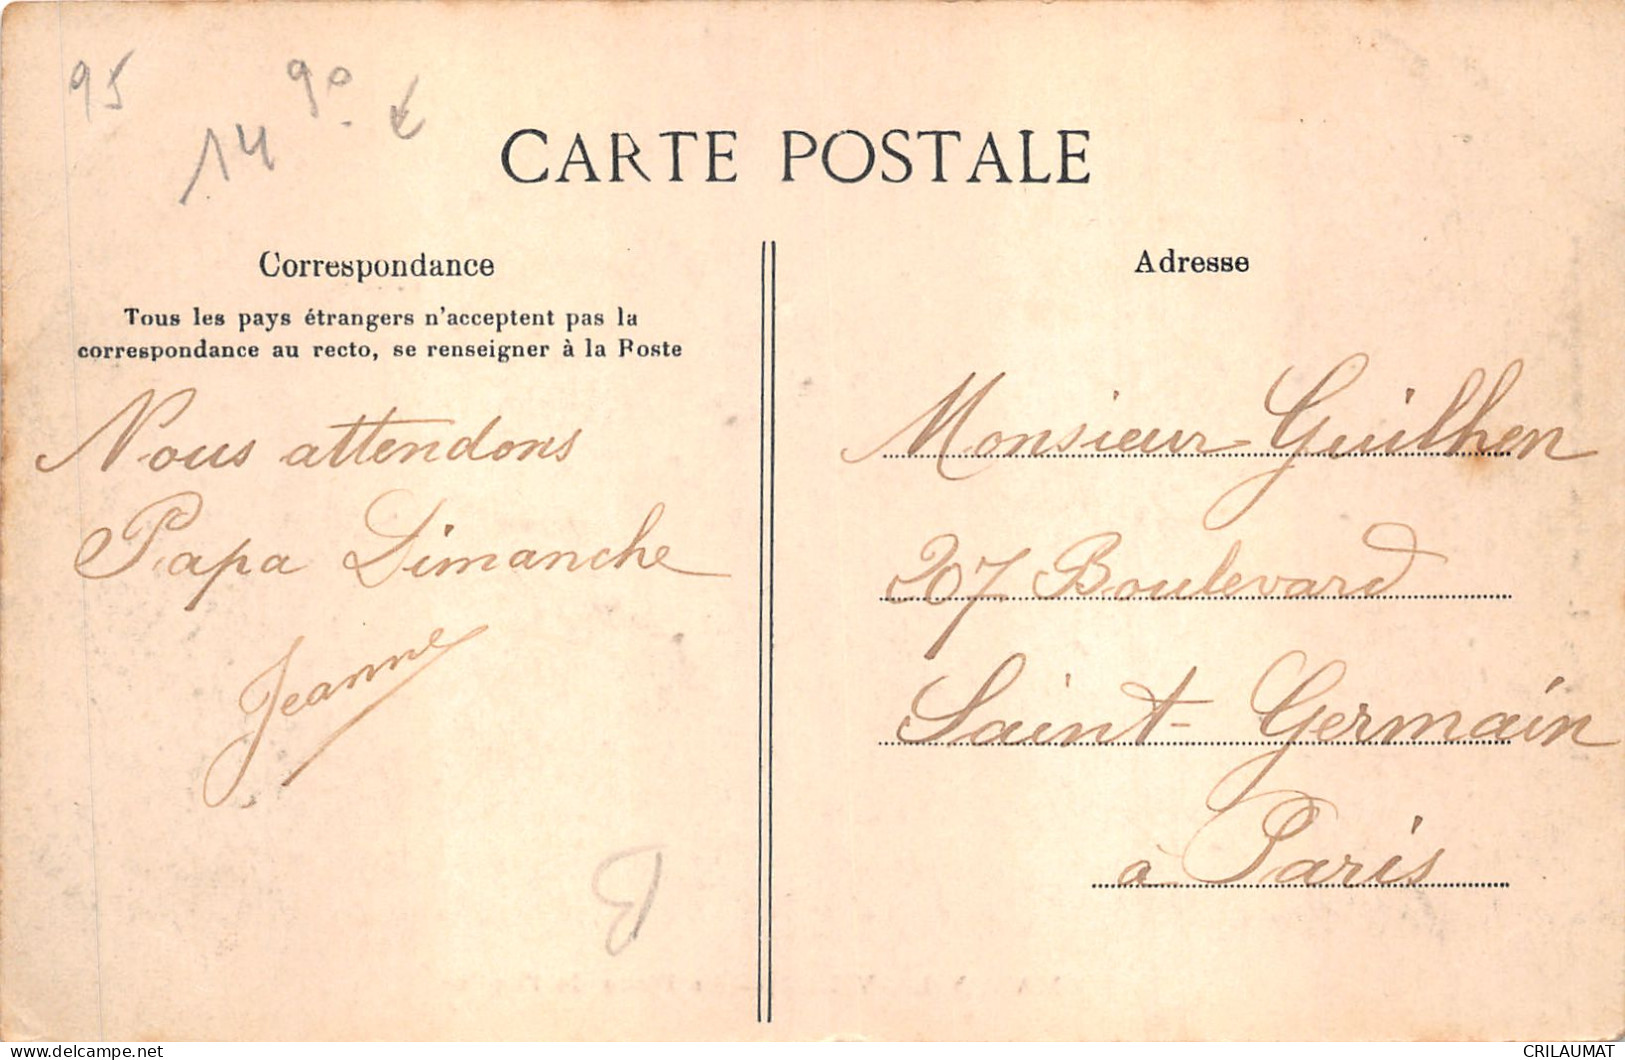 95
14
9º
CARTE POSTALE
Correspondance
Tous les pays étrangers n'acceptent pas la
correspondance au recto, se renseigner à la Poste
Nous attendons
Papa Dimanche
Jeanne
Adresse
Monsieur Guilhen
207 Boulevard
Saint-Germain
à Paris
delcampe.net
CRILAUMAT